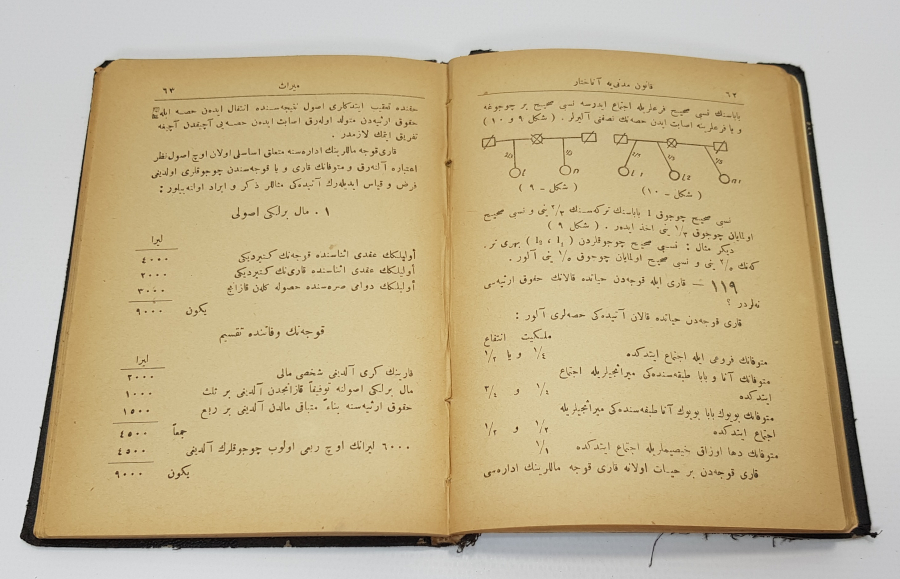 ٦٢
قانون مدنی‌یه آناختار
باباسنك نسبی صحیح فرعلریله اجتماع ایدرسه نسبی صحیح بر چوجوغه
و یا فرعلرینه اصابت ایدن حصه‌نك نصفنی آلیرلر . ( شكل ٩ و ١٠ )
( شكل – ١٠ )
( شكل – ٩ )
نسبی صحیح چوجوق 1 باباسنك تركه‌سنك ٢/٣ ینی و نسبی صحیح
اولمایان چوجوق ١/٣ ینی اخذ ایدەر . ( شكل ٩ )
دیكر مثال : نسبی صحیح چوجوقلردن ( I₁ ، I₂ ) بهری تر .
كه‌نك ٢/٥ ینی و نسبی صحیح اولمایان چوجوق ١/٥ ینی آلور .
١١٩ — قاری ایله قوجه‌دن حیاتده قالانك حقوق ارثیه‌سی
نه‌لردر ؟
قاری قوجه‌دن حیاتده قالان آتیده‌كی حصه‌لری آلور :
ملكیت انتفاع
متوفانك فروعی ایله اجتماع ایتدكده ١/٤ و یا ١/٢
متوفانك آنا و بابا طبقه‌سنده‌كی میراثجیلریله اجتماع
ایتدكده ١/٤ و ٣/٤
متوفانك بویوك بابا بویوك آنا طبقه‌سنده‌كی میراثجیلریله
اجتماع ایتدكده ١/٢ و ١/٢
متوفانك دها اوزاق خیصیملریله اجتماع ایتدكده ١/١
قاری قوجه‌دن بر حیات اولانه قاری قوجه ماللرینك اداره‌سی
میراث
٦٣
حقنده تعقیب ایتدكلری اصول نتیجه‌سنده انتقال ایدەن حصه ایله
حقوق ارثیه‌دن متولد اوله‌رق اصابت ایدەن حصه‌یی آچیقدن آچیغه
تفریق ایتمك لازمدر .
قاری قوجه ماللرینك اداره‌سنه متعلق اساسلی اولان اوچ اصول نظر
اعتباره آلنه‌رق و متوفانك قاری و یا قوجه‌سندن چوجوقلری اولدیغی
فرض و قیاس ایدیله‌رك آتیده‌كی مثاللر ذكر و ایراد اولنه‌بیلور :
١ . مال برلكی اصولی
لیرا
أولیلكك عقدی اثناسنده قوجه‌نك كتیردیكی ٤٠٠٠
أولیلكك عقدی اثناسنده قاری‌نك كتیردیكی ٢٠٠٠
أولیلكك دوامی صره‌سنده حصوله كلەن قازانج ٣٠٠٠
یكون ٩٠٠٠
قوجه‌نك وفاتنده تقسیم
لیرا
قارینك كری آلدیغی شخصی مالی ٢٠٠٠
مال برلكی اصولنه توفیقاً قازانجدن آلدیغی بر ثلث ١٠٠٠
حقوق ارثیه‌سنه بناءً متباقی مالدن آلدیغی بر ربع ١٥٠٠
جمعاً ٤٥٠٠
٦٠٠٠ لیرانك اوچ ربعی اولوب چوجوقلرك آلدیغی ٤٥٠٠
یكون ٩٠٠٠